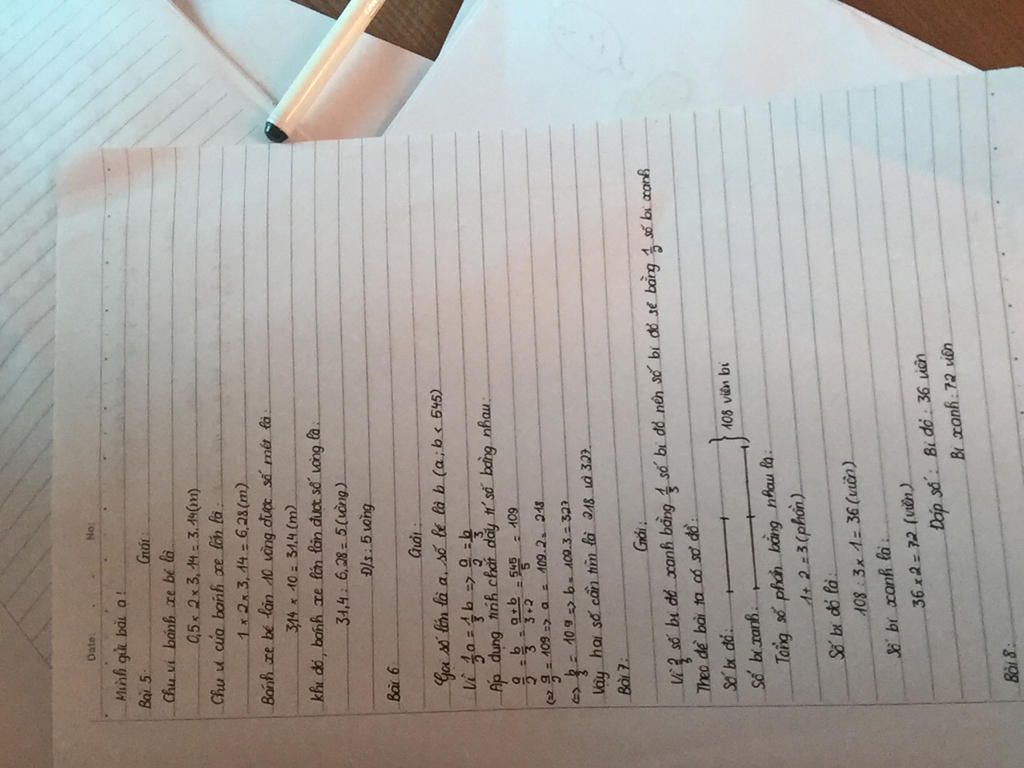 Date: No:
Mình gửi bài ạ!
Bài 5: Giải:
Chu vi bánh xe bé là:
0,5 x 2 x 3,14 = 3,14 (m)
Chu vi của bánh xe lớn là:
1 x 2 x 3,14 = 6,28 (m)
Bánh xe bé lăn 10 vòng được số mét là:
3,14 x 10 = 31,4 (m)
Khi đó, bánh xe lớn lăn được số vòng là:
31,4 : 6,28 = 5 (vòng)
Đ/s: 5 vòng
Bài 6
Giải:
Gọi số lớn là a, số bé là b (a; b < 545)
Vì 1/2 a = 1/3 b => a/2 = b/3
Áp dụng tính chất dãy tỉ số bằng nhau:
a/2 = b/3 = a+b/3+2 = 545/5 = 109
<=> a/2 = 109 => a = 109.2 = 218
<=> b/3 = 109 => b = 109.3 = 327
Vậy hai số cần tìm là 218 và 327.
Bài 7: Giải:
số bi đỏ nên số bi đỏ sẽ bằng 1/2 số bi xanh
Theo đề bài ta có sơ đồ:
Số bi đỏ:
Số bi xanh: } 108 viên bi
Tổng số phần bằng nhau là:
1 + 2 = 3 (phần)
Số bi đỏ là:
108 : 3 x 1 = 36 (viên)
Số bi xanh là:
36 x 2 = 72 (viên)
Đáp số: Bi đỏ: 36 viên
Bi xanh: 72 viên
Bài 8: